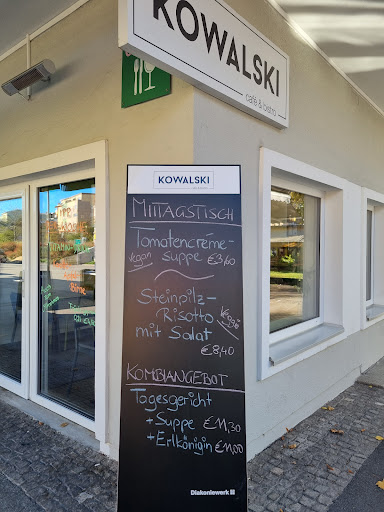 KOWALSKI
café & bistro
KOWALSKI
MITTAGSTISCH
Tomatencréme-
vegan suppe €3,60
Steinpilz-
Risotto
mit Salat Veggie
€8,40
KOMBIANGEBOT
Tagesgericht
+ Suppe €11,30
+ Erlkönigin €11,00
Diakoniewerk